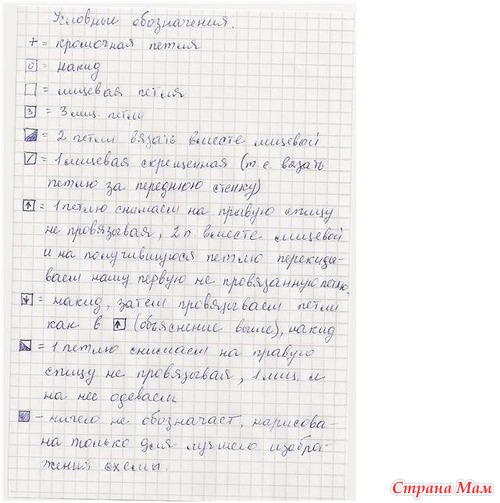 Условные обозначения.
+ = кромочная петля
О = накид
= лицевая петля
3 = 3 лиц. петли
= 2 петли вязать вместе лицевой
/ = 1 лицевая скрещенная (т.е. вязать
петлю за переднюю стенку)
↑ = 1 петлю снимаем на правую спицу
не провязывая, 2 п вместе лицевой
и на получившуюся петлю перекиды-
ваем нашу первую не провязанную петлю.
↓ = накид, затем провязываем петли
как в ↑ (объяснение выше), накид
= 1 петлю снимаем на правую
спицу не провязывая, 1 лиц. и
на нее одеваем
- ничего не обозначает, нарисова-
на только для лучшего изобра-
жения схемы.
Страна Мам